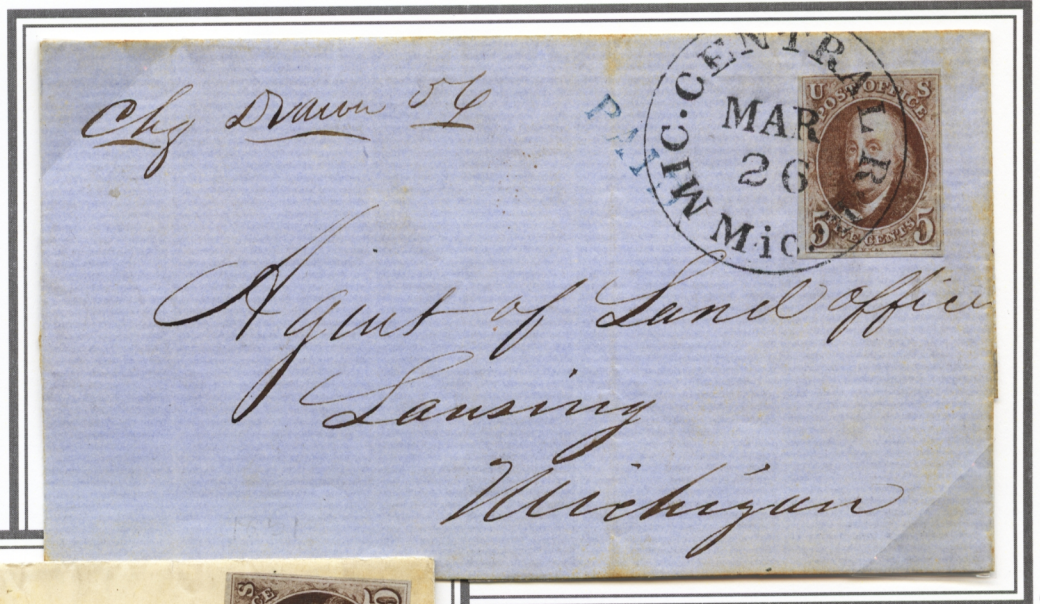 Chg Drawn
PAID
MIC. CENTRAL R.
MAR
26
Mic.
U S
POST OFFICE
5 FIVE CENTS 5
Agent of Land office
Lansing
Michigan
1851